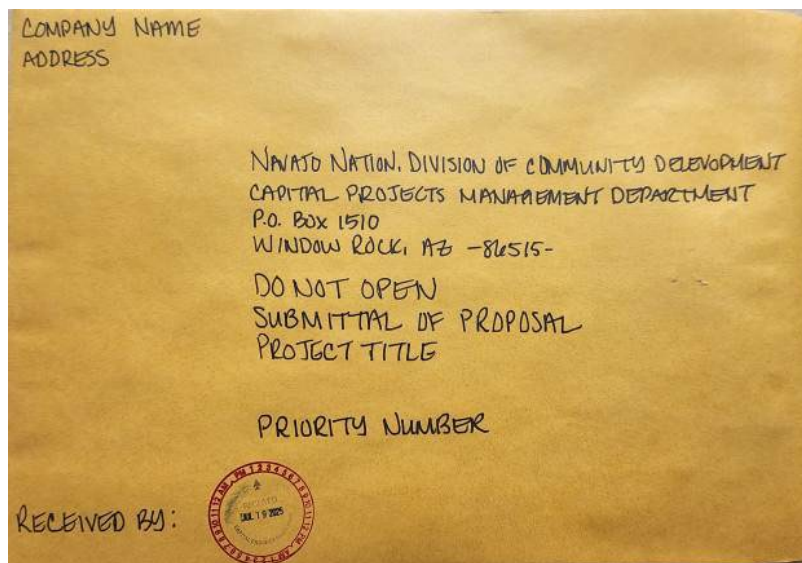 COMPANY NAME
ADDRESS
NAVAJO NATION. DIVISION OF COMMUNITY DELEVOPMENT
CAPITAL PROJECTS MANAGEMENT DEPARTMENT
P.O. BOX 1510
WINDOW ROCK, AZ -86515-
DO NOT OPEN
SUBMITTAL OF PROPOSAL
PROJECT TITLE
PRIORITY NUMBER
RECEIVED BY:
19 2025